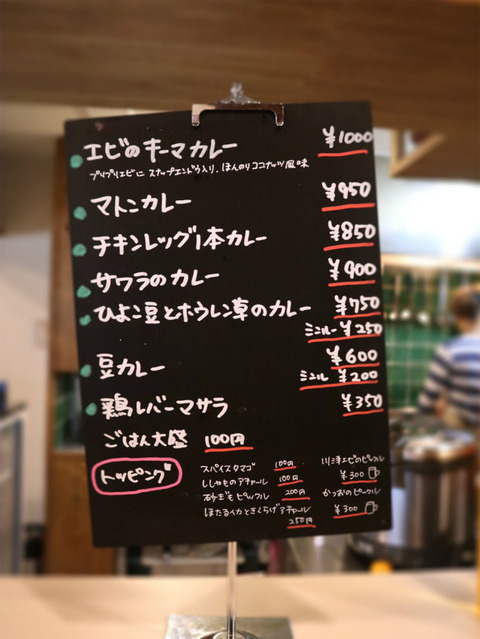 エビのキーマカレー ¥1000
プリプリエビに スナップエンドウ入り、ほんのりココナッツ風味
マトンカレー ¥950
チキンレッグ1本カレー ¥850
サワラのカレー ¥900
ひよこ豆とホウレン草のカレー ¥750
ミニルー ¥250
豆カレー ¥600
ミニル ¥200
鶏レバーマサラ ¥350
ごはん大盛 100円
トッピング
スパイスタマゴ 100円
ししゃものアチャール 100円
砂ぎもピックル 200円
ほたるイカときくらげアチャール
250円
川津エビのピックル
¥300
かつおのピークル
¥300